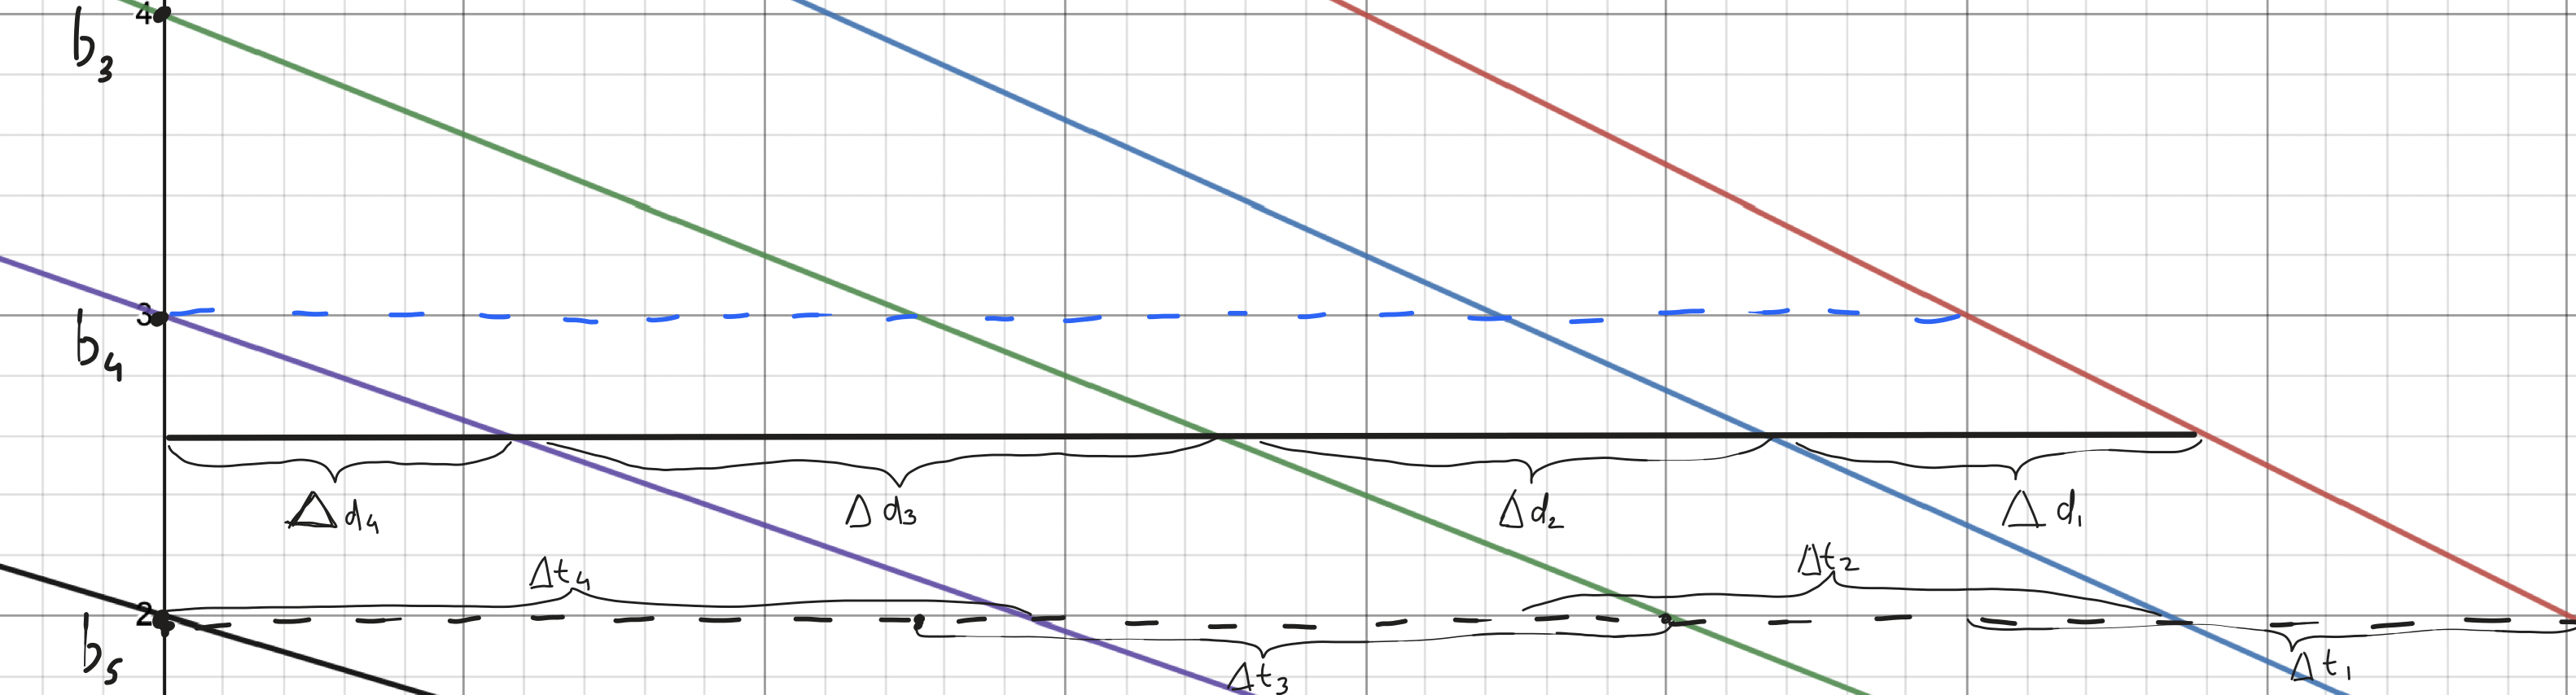 4
b₃
3
b₄
Δd₄
Δd₃
Δd₂
Δd₁
Δt₄
Δt₂
2
b₅
Δt₃
Δt₁